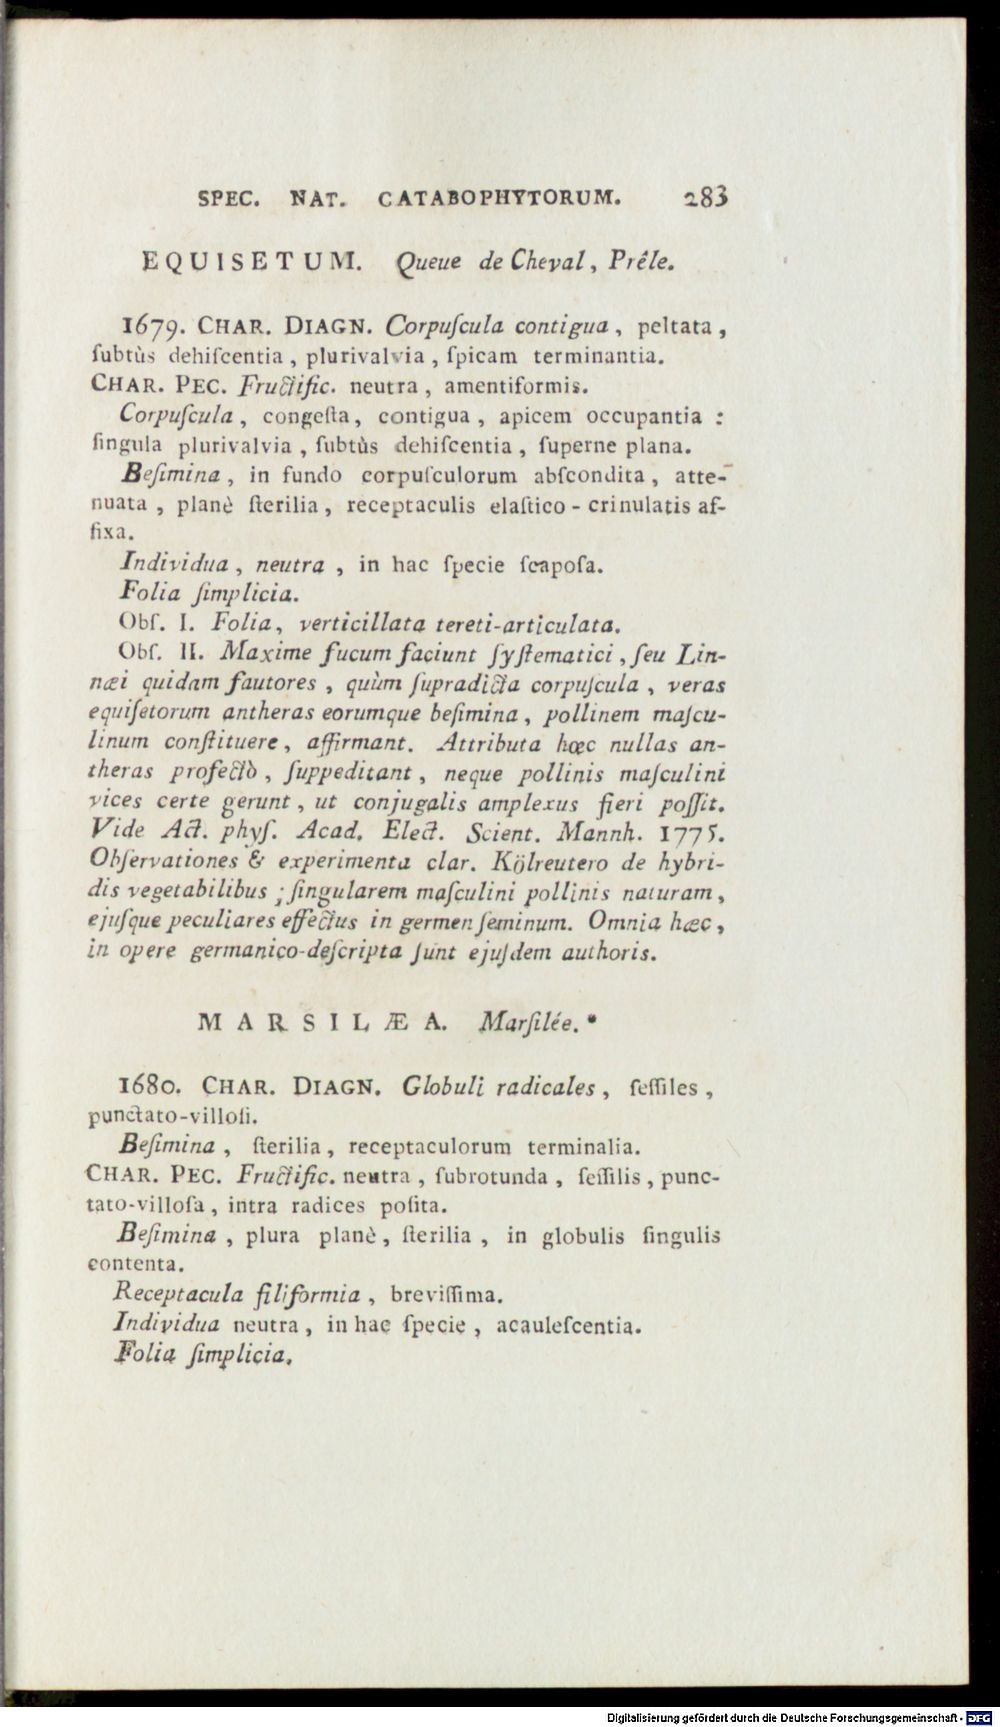 SPEC. NAT. CATABOPHYTORUM. 283
EQUISETUM. Queue de Cheval, Prêle.
1679. CHAR. DIAGN. Corpuſcula contigua, peltata,
ſubtùs dehiſcentia, plurivalvia, ſpicam terminantia.
CHAR. PEC. Fructific. neutra, amentiformis.
Corpuſcula, congeſta, contigua, apicem occupantia :
ſingula plurivalvia, ſubtùs dehiſcentia, ſuperne plana.
Beſimina, in fundo corpuſculorum abſcondita, atte-
nuata, planè ſterilia, receptaculis elaſtico-crinulatis af-
fixa.
Individua, neutra, in hac ſpecie ſcapoſa.
Folia ſimplicia.
Obſ. I. Folia, verticillata tereti-articulata.
Obſ. II. Maxime fucum faciunt ſyſtematici, ſeu Lin-
næi quidam fautores, quùm ſupradicta corpuſcula, veras
equiſetorum antheras eorumque beſimina, pollinem maſcu-
linum conſtituere, affirmant. Attributa hœc nullas an-
theras profectò, ſuppeditant, neque pollinis maſculini
vices certe gerunt, ut conjugalis amplexus fieri poſſit.
Vide Act. phyſ. Acad. Elect. Scient. Mannh. 1775.
Obſervationes & experimenta clar. Kölreutero de hybri-
dis vegetabilibus ; ſingularem maſculini pollinis naturam,
ejuſque peculiares effectus in germen ſeminum. Omnia hæc,
in opere germanico-deſcripta ſunt ejuſdem authoris.
MARSILÆA. Marſilée.*
1680. CHAR. DIAGN. Globuli radicales, ſeſſiles,
punctato-villoſi.
Beſimina, ſterilia, receptaculorum terminalia.
CHAR. PEC. Fructific. neutra, ſubrotunda, ſeſſilis, punc-
tato-villoſa, intra radices poſita.
Beſimina, plura planè, ſterilia, in globulis ſingulis
contenta.
Receptacula filiformia, breviſſima.
Individua neutra, in hac ſpecie, acauleſcentia.
Folia ſimplicia.
Digitalisierung gefördert durch die Deutsche Forschungsgemeinschaft - DFG